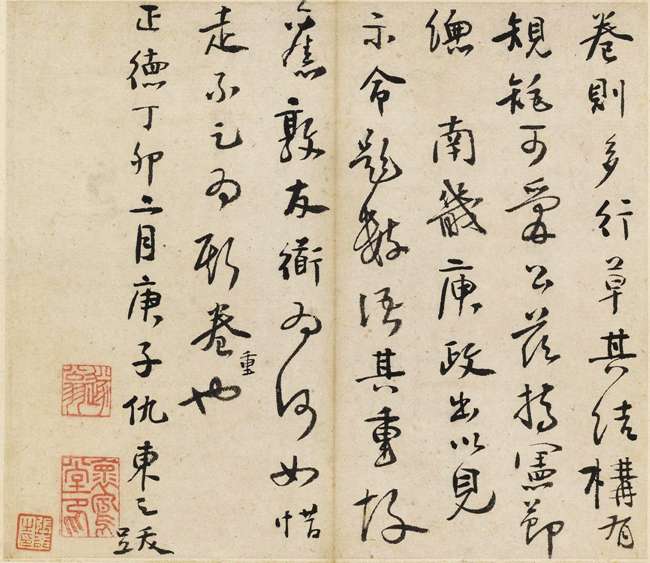 卷則多行草其结構有
規矩可愛公茲持憲節
總 南畿庚政出以見
示命題數語其重故
舊敦友衟為何如惜
走不足為斯卷重也
正德丁卯二月庚子仇東之跋